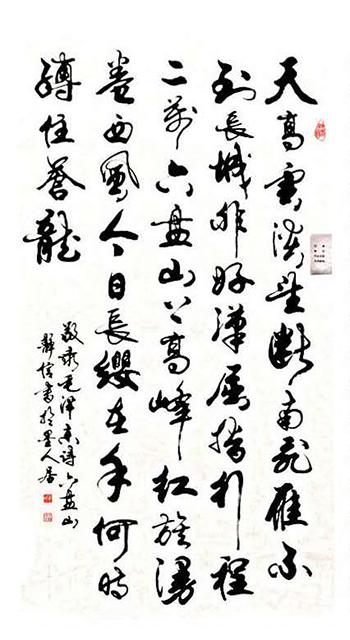 天高雲淡望断南飛雁不
到長城非好漢屈指行程
二萬六盘山上高峰紅旗漫
卷西風今日長纓在手何時
縛住蒼龍
敬录毛泽东诗六盘山
書於墨人居